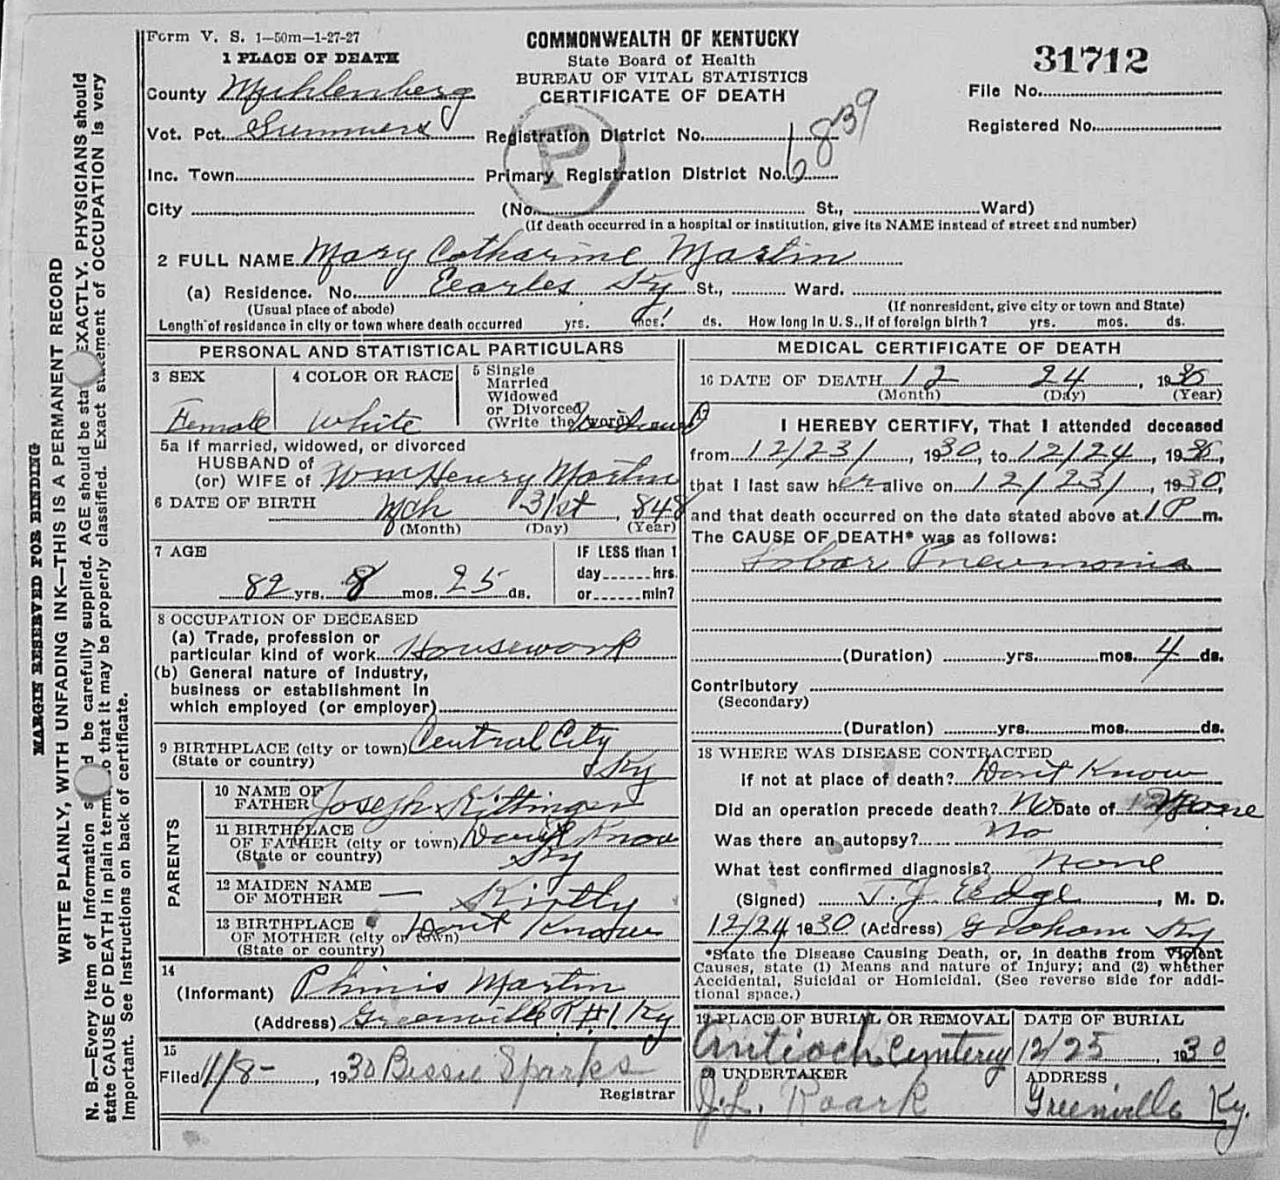 Form V. S. 1—50m—1-27-27
COMMONWEALTH OF KENTUCKY
State Board of Health
BUREAU OF VITAL STATISTICS
CERTIFICATE OF DEATH
31712
File No.
Registered No.
1 PLACE OF DEATH
County Muhlenberg
Vot. Pct. Summers
Registration District No. 839
Inc. Town
Primary Registration District No. 6
P
City (No. St., Ward)
(If death occurred in a hospital or institution, give its NAME instead of street and number)
2 FULL NAME Mary Catharine Martin
(a) Residence. No. Earles Ky St., Ward.
(Usual place of abode) (If nonresident, give city or town and State)
Length of residence in city or town where death occurred yrs. mos. ds. How long in U. S., if of foreign birth? yrs. mos. ds.
PERSONAL AND STATISTICAL PARTICULARS
3 SEX
Female
4 COLOR OR RACE
White
5 Single
Married
Widowed
or Divorced
(Write the word)
5a If married, widowed, or divorced
HUSBAND of
(or) WIFE of Wm Henry Martin
6 DATE OF BIRTH Mch 31st, 848
(Month) (Day) (Year)
7 AGE
82 yrs. 8 mos. 25 ds.
IF LESS than 1
day hrs.
or min?
8 OCCUPATION OF DECEASED
(a) Trade, profession or
particular kind of work Housework
(b) General nature of industry,
business or establishment in
which employed (or employer)
9 BIRTHPLACE (city or town) Central City
(State or country) Ky
PARENTS
10 NAME OF
FATHER Joseph Kittinger
11 BIRTHPLACE
OF FATHER (city or town) Don't Know
(State or country) Ky
12 MAIDEN NAME
OF MOTHER — Kirtly
13 BIRTHPLACE
OF MOTHER (city or town) Dont Know
(State or country)
14
(Informant) Phinis Martin
(Address) Greenville R#1, Ky
15
Filed 1/8-, 1930 Bessie Sparks
Registrar
MEDICAL CERTIFICATE OF DEATH
16 DATE OF DEATH 12 24, 1930
(Month) (Day) (Year)
I HEREBY CERTIFY, That I attended deceased
from 12/23/, 1930, to 12/24, 1930,
that I last saw her alive on 12/23/, 1930,
and that death occurred on the date stated above at 1 P m.
The CAUSE OF DEATH* was as follows:
Lobar Pneumonia
(Duration) yrs. mos. 4 ds.
Contributory
(Secondary)
(Duration) yrs. mos. ds.
18 WHERE WAS DISEASE CONTRACTED
If not at place of death? Don't Know
Did an operation precede death? No Date of None
Was there an autopsy? No
What test confirmed diagnosis? none
(Signed) T. J. Edge, M. D.
12/24 1930 (Address) Graham Ky
*State the Disease Causing Death, or, in deaths from Violent
Causes, state (1) Means and nature of Injury; and (2) whether
Accidental, Suicidal or Homicidal. (See reverse side for addi-
tional space.)
19 PLACE OF BURIAL OR REMOVAL
Antioch Cemtery
DATE OF BURIAL
12/25, 1930
20 UNDERTAKER
J. L. Roark
ADDRESS
Greenville Ky.
MARGIN RESERVED FOR BINDING
WRITE PLAINLY, WITH UNFADING INK—THIS IS A PERMANENT RECORD
N. B.—Every item of information should be carefully supplied. AGE should be stated EXACTLY. PHYSICIANS should
state CAUSE OF DEATH in plain terms, so that it may be properly classified. Exact statement of OCCUPATION is very
important. See instructions on back of certificate.